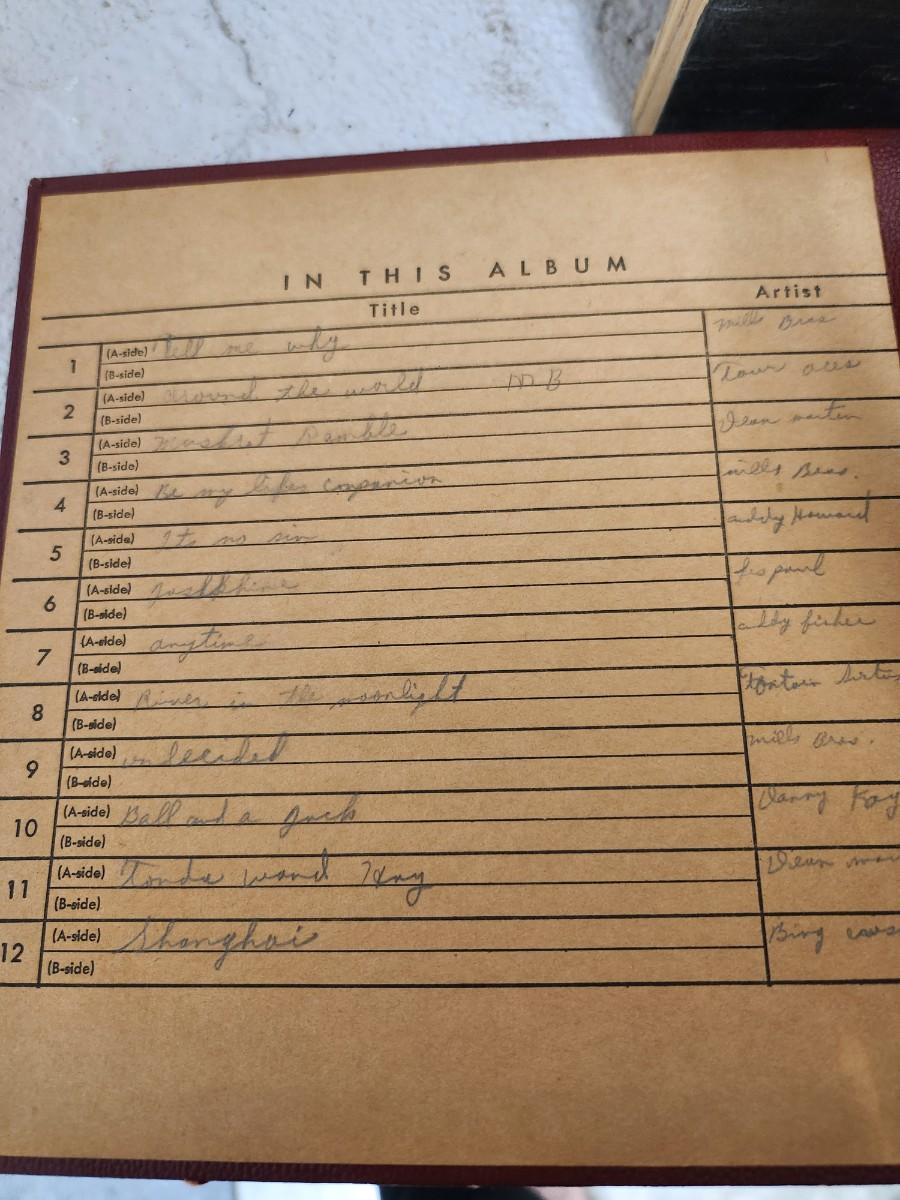 IN THIS ALBUM
Title Artist
1 (A-side) Tell me why Mills Bros
(B-side)
2 (A-side) around the world M B Four aces
(B-side)
3 (A-side) Muskrat Ramble Dean martin
(B-side)
4 (A-side) Be my lifes companion mills Bros.
(B-side)
5 (A-side) Its no sin eddy Howard
(B-side)
6 (A-side) les paul
(B-side)
7 (A-side) anytime eddy fisher
(B-side)
8 (A-side) River in the moonlight
(B-side)
9 (A-side) undecided mills Bros.
(B-side)
10 (A-side) Ball and a Danny Kay
(B-side)
11 (A-side) Dean mar
(B-side)
12 (A-side) Shanghai Bing
(B-side)